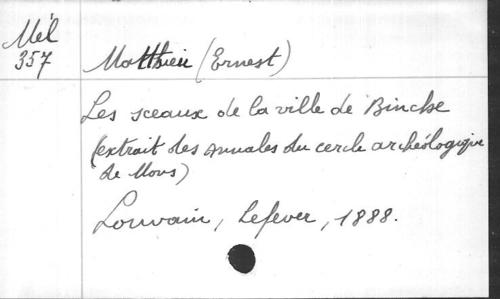 Mél
357
Matthieu (Ernest)
Les sceaux de la ville de Binche
(extrait des annales du cercle archéologique
de Mons)
Louvain, Lefever, 1888.